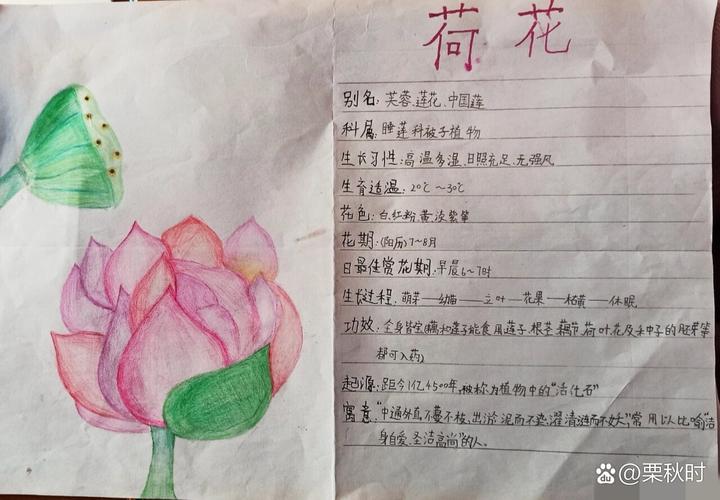 荷花
别名:芙蓉、莲花、中国莲
科属:睡莲科被子植物
生长习性:高温多湿、日照充足、无强风
生育适温:20℃~30℃
花色:白红粉黄淡紫等
花期:(阳历)7~8月
日最佳赏花期:早晨6~7时
生长过程:萌芽——幼苗——立叶——花果——枯黄——休眠
功效:全身皆宝(藕和莲子能食用莲子、根茎、藕节、荷叶、花及种子的胚芽等
都可入药)
起源:距今1亿4500年,被称为植物中的“活化石”
寓意:“中通外直不蔓不枝、出淤泥而不染,濯清涟而不妖”,常用以比喻“洁
身自爱、圣洁高尚”的人。
Baidu 栗秋时